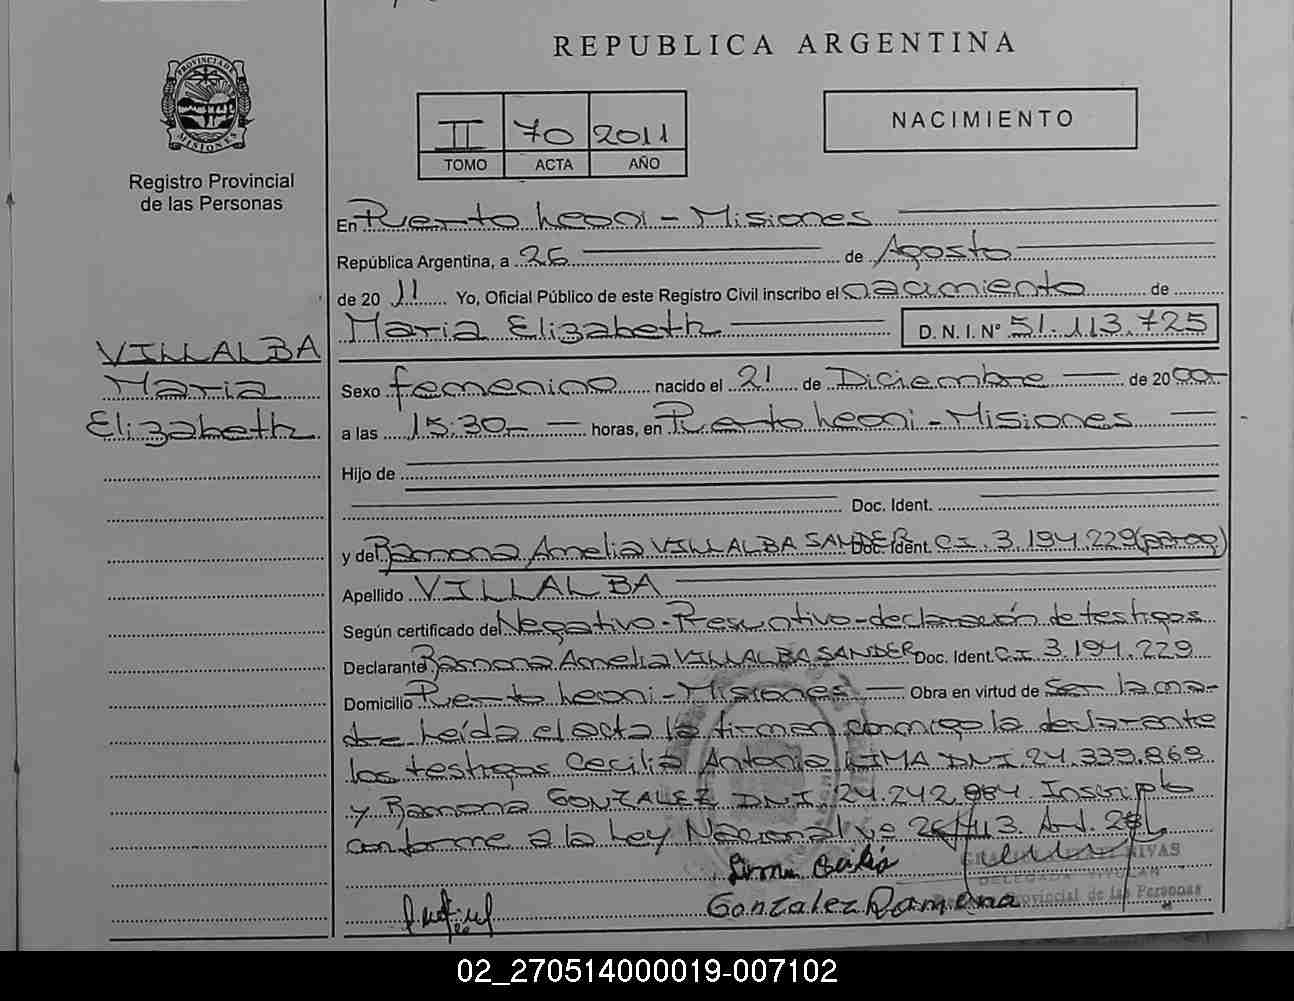 REPUBLICA ARGENTINA
PROVINCIA DE MISIONES
Registro Provincial
de las Personas
II 70 2011
TOMO ACTA AÑO
NACIMIENTO
En Puerto Leoni - Misiones
República Argentina, a 26 de Agosto
de 2011 Yo, Oficial Público de este Registro Civil inscribo el nacimiento de
Maria Elizabeth D.N.I. Nº 51.113.725
VILLALBA
Maria
Elizabeth
Sexo femenino nacido el 21 de Diciembre de 2000
a las 15:30 horas, en Puerto Leoni - Misiones
Hijo de
Doc. Ident.
y de Ramona Amelia VILLALBA SANDER Doc. Ident. C.I. 3.194.229 (parag)
Apellido VILLALBA
Según certificado de Negativo - Presuntivo - declaración de testigos
Declarante Ramona Amelia VILLALBA SANDER Doc. Ident. C.I 3.194.229
Domicilio Puerto Leoni - Misiones Obra en virtud de Ser la ma-
dre Leída el acta la firman conmigo la declarante
los testigos Cecilia Antonia LIMA DNI. 24.339.869
y Ramona GONZALEZ DNI. 24.242.984 Inscripto
conforme a la Ley Nacional Nº 26.413. Art. 28
Lima Cecilia
Gonzalez Ramona
RIVAS
DELEGADA TITULAR
Provincial de las Personas
02_270514000019-007102